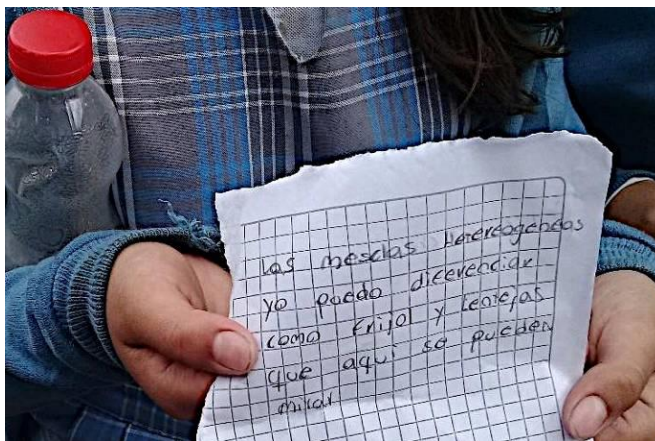 Las mesclas Hetereogeneas
yo puedo diferenciar
como frijol y lentejas
que aqui se pueden
mirar